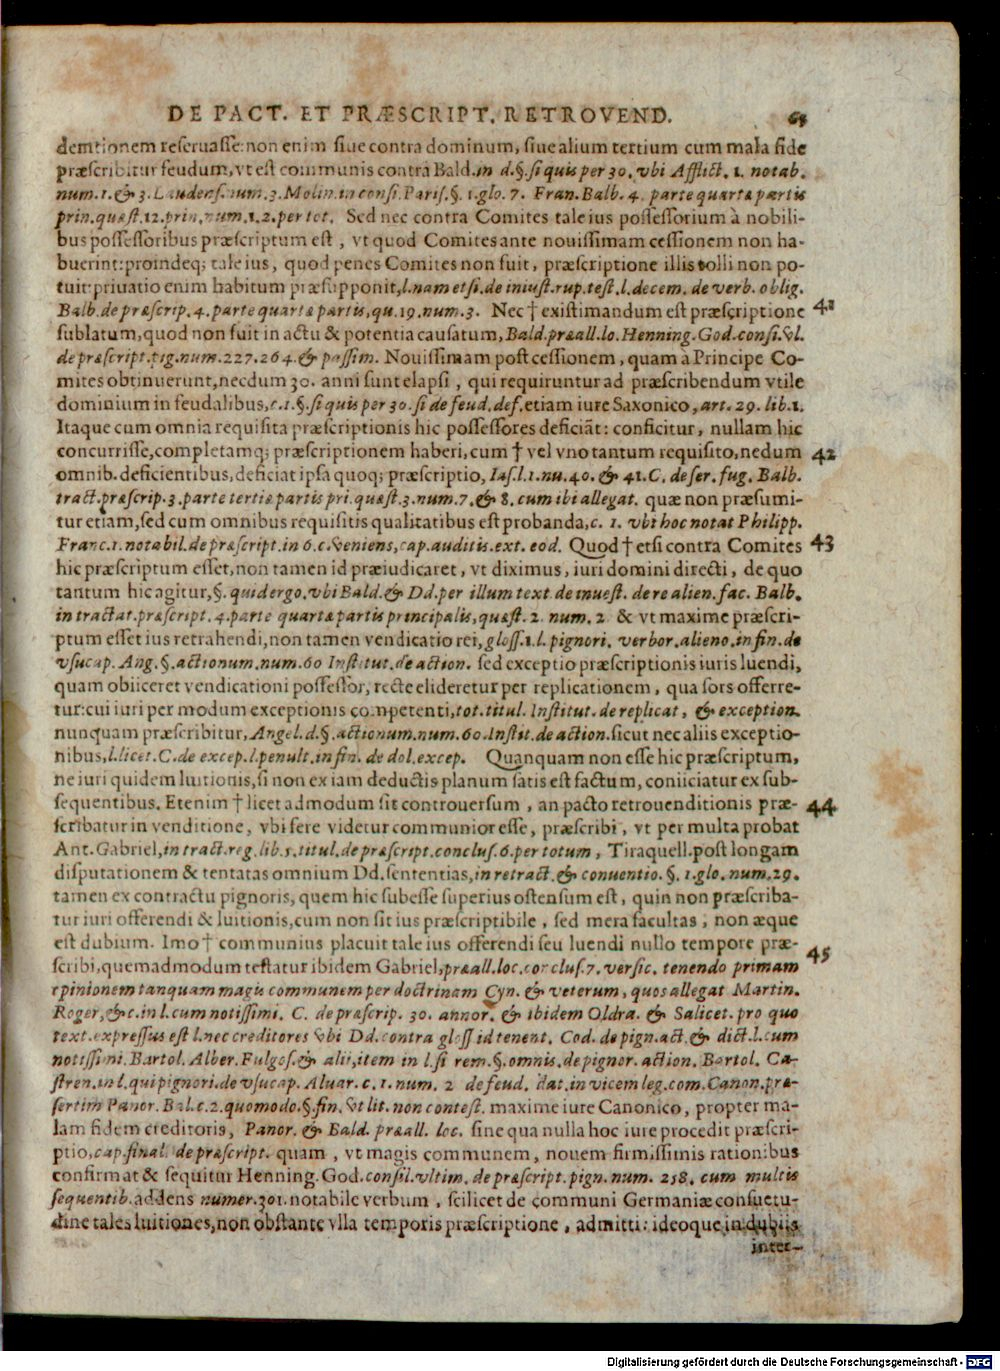 DE PACT. ET PRÆSCRIPT. RETROVEND. 65
demtionem reſeruaſſe: non enim ſiue contra dominum, ſiue alium tertium cum mala fide
præſcribitur feudum, vt eſt communis contra Bald. in d. §. ſi quis per 30. vbi Afflict. 1. notab.
num. 1. & 3. Laudenſ. num. 3. Molin. in conſ. Pariſ. §. 1. glo. 7. Fran. Balb. 4. parte quartæ partis
prin. quæſt. 12. prin. num. 1. 2. per tot. Sed nec contra Comites tale ius poſſeſſorium à nobili-
bus poſſeſſoribus præſcriptum eſt, vt quod Comites ante nouiſſimam ceſſionem non ha-
buerint: proindeq; tale ius, quod penes Comites non fuit, præſcriptione illis tolli non po-
tuit: priuatio enim habitum præſupponit, l. nam etſi. de iniuſt. rup. teſt. l. decem. de verb. oblig.
Balb. de præſcrip. 4. parte quartæ partis, qu. 19. num. 3. Nec † exiſtimandum eſt præſcriptione 41
ſublatum, quod non fuit in actu & potentia cauſatum, Bald. præall. lo. Henning. God. conſi. vl.
de præſcript. pig. num. 227. 264. & paſſim. Nouiſſimam poſt ceſſionem, quam à Principe Co-
mites obtinuerunt, necdum 30. anni ſunt elapſi, qui requiruntur ad præſcribendum vtile
dominium in feudalibus, c. 1. §. ſi quis per 30. ſi de feud. def. etiam iure Saxonico, art. 29. lib. 1.
Itaque cum omnia requiſita præſcriptionis hic poſſeſſores deficiāt: conficitur, nullam hic
concurriſſe, completamq; præſcriptionem haberi, cum † vel vno tantum requiſito, nedum 42
omnib. deficientibus, deficiat ipſa quoq; præſcriptio, Iaſ. l. 1. nu. 40. & 41. C. de ſer. fug. Balb.
tract. præſcrip. 3. parte tertiæ partis pri. quæſt. 3. num. 7. & 8. cum ibi allegat. quæ non præſumi-
tur etiam, ſed cum omnibus requiſitis qualitatibus eſt probanda, c. 1. vbi hoc notat Philipp.
Franc. 1. notabil. de præſcript. in 6. c. veniens, cap. auditis. ext. eod. Quod † etſi contra Comites 43
hic præſcriptum eſſet, non tamen id præiudicaret, vt diximus, iuri domini directi, de quo
tantum hic agitur, §. quid ergo. vbi Bald. & Dd. per illum text. de inueſt. de re alien. fac. Balb.
in tractat. præſcript. 4. parte quartæ partis principalis, quæſt. 2. num. 2 & vt maxime præſcri-
ptum eſſet ius retrahendi, non tamen vendicatio rei, gloſſ. 1. l. pignori. verbor. alieno. in fin. de
vſucap. Ang. §. actionum. num. 60 Inſtitut. de action. ſed exceptio præſcriptionis iuris luendi,
quam obiiceret vendicationi poſſeſſor, recte elideretur per replicationem, qua ſors offerre-
tur: cui iuri per modum exceptionis competenti, tot. titul. Inſtitut. de replicat, & exception.
nunquam præſcribitur, Angel. d. §. actionum. num. 60. Inſtit. de action. ſicut nec aliis exceptio-
nibus, l. licet. C. de excep. l. penult. in fin. de dol. excep. Quanquam non eſſe hic præſcriptum,
ne iuri quidem luitionis, ſi non ex iam deductis planum ſatis eſt factum, coniiciatur ex ſub-
ſequentibus. Etenim † licet admodum ſit controuerſum, an pacto retrouenditionis præ- 44
ſcribatur in venditione, vbi fere videtur communior eſſe, præſcribi, vt per multa probat
Ant. Gabriel, in tract. reg. lib. 5. titul. de præſcript. concluſ. 6. per totum, Tiraquell. poſt longam
diſputationem & tentatas omnium Dd. ſententias, in retract. & conuentio. §. 1. glo. num. 29.
tamen ex contractu pignoris, quem hic ſubeſſe ſuperius oſtenſum eſt, quin non præſcriba-
tur iuri offerendi & luitionis, cum non ſit ius præſcriptibile, ſed mera facultas, non æque
eſt dubium. Imo † communius placuit tale ius offerendi ſeu luendi nullo tempore præ- 45
ſcribi, quemadmodum teſtatur ibidem Gabriel, præall. loc. concluſ. 7. verſic. tenendo primam
opinionem tanquam magis communem per doctrinam Cyn. & veterum, quos allegat Martin.
Roger, & c. in l. cum notiſſimi. C. de præſcrip. 30. annor. & ibidem Oldra. & Salicet. pro quo
text. expreſſus eſt l. nec creditores vbi Dd. contra gloſſ id tenent. Cod. de pign. act. & dict. l. cum
notiſſimi. Bartol. Alber. Fulgoſ. & alii, item in l. ſi rem. §. omnis. de pignor. action. Bartol. Ca-
ſtren. in l. qui pignori. de vſucap. Aluar. c. 1. num. 2 de feud. dat. in vicem leg. com. Canon. præ-
ſertim Panor. Bal. c. 2. quomodo. §. fin. vt lit. non conteſt. maxime iure Canonico, propter ma-
lam fidem creditoris, Panor. & Bald. præall. loc. ſine qua nulla hoc iure procedit præſcri-
ptio, cap. final. de præſcript. quam, vt magis communem, nouem firmiſſimis rationibus
confirmat & ſequitur Henning. God. conſil. vltim. de præſcript. pign. num. 258. cum multis
ſequentib. addens numer. 301. notabile verbum, ſcilicet de communi Germaniæ conſuetu-
dine tales luitiones, non obſtante vlla temporis præſcriptione, admitti: ideoque in dubiis
inter-
Digitalisierung gefördert durch die Deutsche Forschungsgemeinschaft - DFG